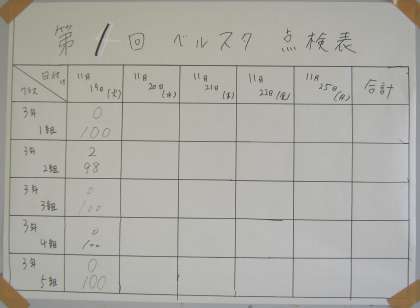 第1回 ベルスタ 点検表
日にち 11月 11月 11月 11月 11月 合計
クラス 19日(火) 20日(水) 21日(木) 22日(金) 25日(月)
3年 0
1組 100
3年 2
2組 98
3年 0
3組 100
3年 0
4組 100
3年 0
5組 100